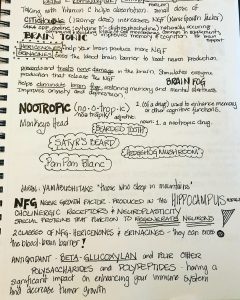 Taking with Vitamin C helps absorption. Small dose of
CITICHOLINE (120mg dose) increases NGF (Nerve Growth Factor)
naturally occurring
BRAIN TONIC
HERICENONES help your brain produce more NGF
ERINACINES cross the blood-brain barrier to boost neuron production
and in the brain. Stimulates enzyme
production that release the NGF
BRAIN FOG
Helps eliminate brain fog, restoring memory and mental alertness
Improves anxiety and depression
NOOTROPIC (nō-ō-trop-ik) 1. (of a drug) used to enhance memory
or other cognitive functions.
nootropic adjective
noun: 1. a nootropic drug.
Monkeys head
BEARDED TOOTH
SATYR'S BEARD
HEDGEHOG MUSHROOM
Pom Pom Blanc
JAPAN: YAMABUSHITAKE "those who sleep in mountains"
NFG NERVE GROWTH FACTOR: PRODUCED IN THE HIPPOCAMPUS
CHOLINERGIC RECEPTORS & NEUROPLASTICITY
SPECIAL PROTEINS THAT FUNCTION TO REGENERATE NEURONS
2 CLASSES OF NFG - HERICENONES & ERINACINES - they can cross the
blood-brain barrier!
ANTIOXIDANT BETA-GLUCOXYLAN and four other
POLYSACCHARIDES and POLYPEPTIDES - having a
significant impact on enhancing your immune system
and decrease tumor growth